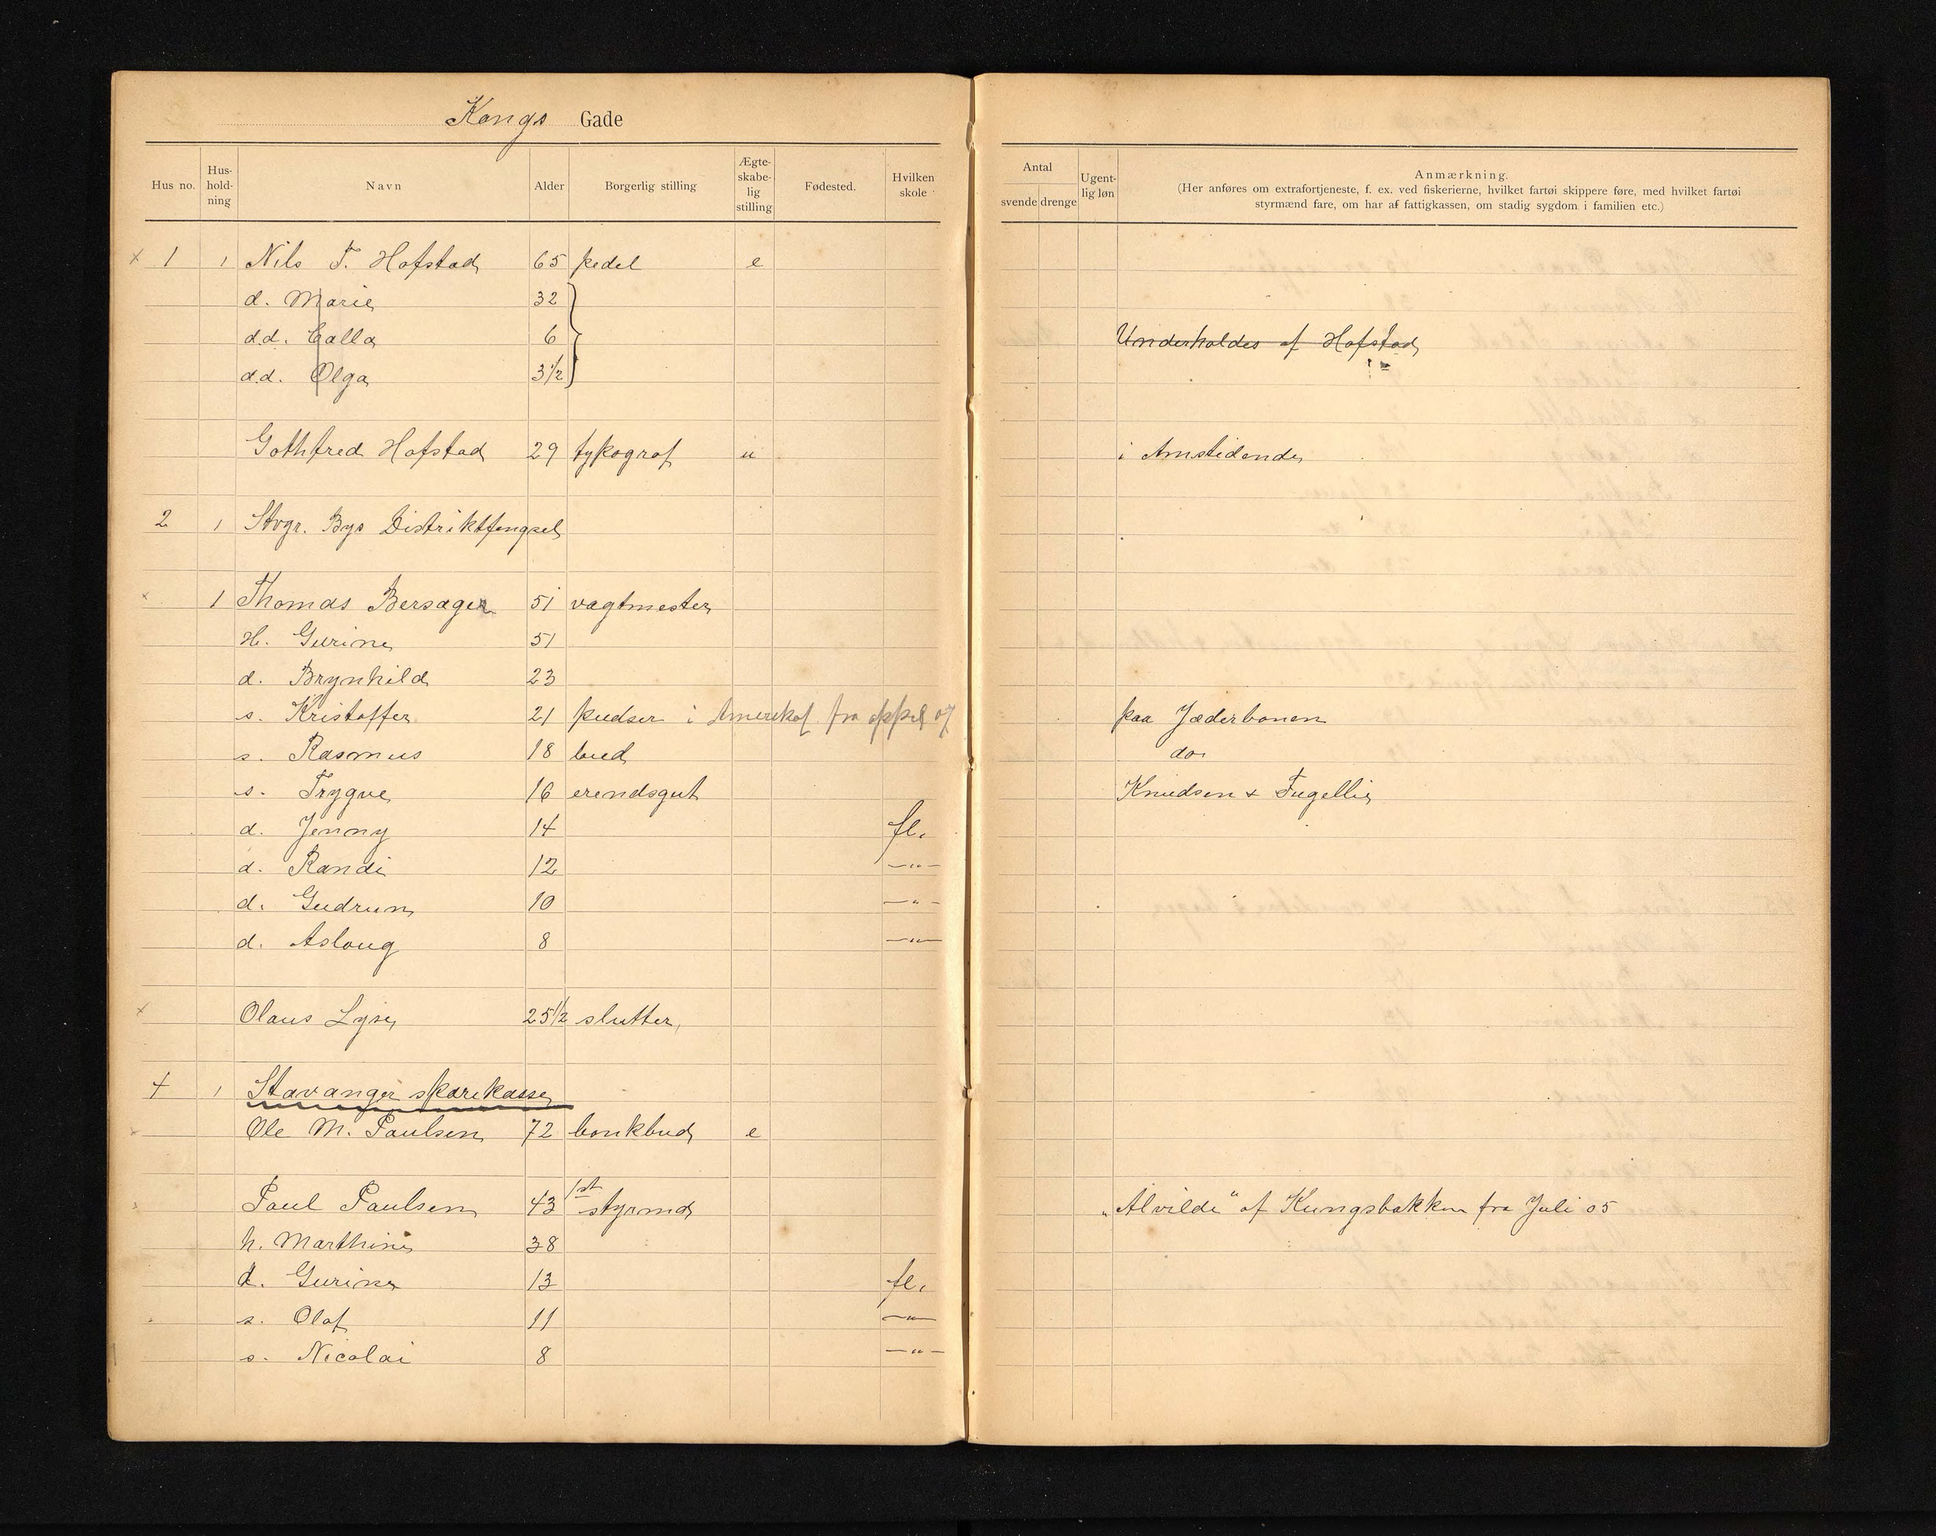 Kongs Gade
Hus no. Hus-hold-ning Navn Alder Borgerlig stilling Ægte-skabe-lig stilling Fødested. Hvilken skole Antal svende drenge Ugent-lig løn Anmærkning.
(Her anføres om extrafortjeneste, f. ex. ved fiskerierne, hvilket fartøi skippere føre, med hvilket fartøi
styrmænd fare, om har af fattigkassen, om stadig sygdom i familien etc.)
× 1 1 Nils T. Hofstad 65 pedel e
d. Marie 32
d.d. Calla 6 Underholdes af Hofstad
d.d. Olga 3 1/2
Gothfred Hofstad 29 typograf u i Amstidende
2 1 Stvgr. Bys Distriktfengsel
× 1 Thomas Bersager 51 vagtmester
H. Gurine 51
d. Brynhild 23
s. Kristoffer 21 pudser i Amerika fra 07 paa Jæderbanen
s. Rasmus 18 bud do
s. Trygve 16 erendsgut Knudsen & Fugellie
d. Jenny 14 fl.
d. Randi 12 —"—
d. Gudrun 10 —"—
d. Aslaug 8 —"—
× Olaus Lyse 25 1/2 slutter
4 1 Stavanger sparekasse
Ole M. Paulsen 72 bankbud e
Paul Paulsen 43 1st styrmd „Alvilde" af Kungsbakken fra Juli 05
h. Marthine 38
d. Gurine 13 fl.
s. Olaf 11 —"—
s. Nicolai 8 —"—